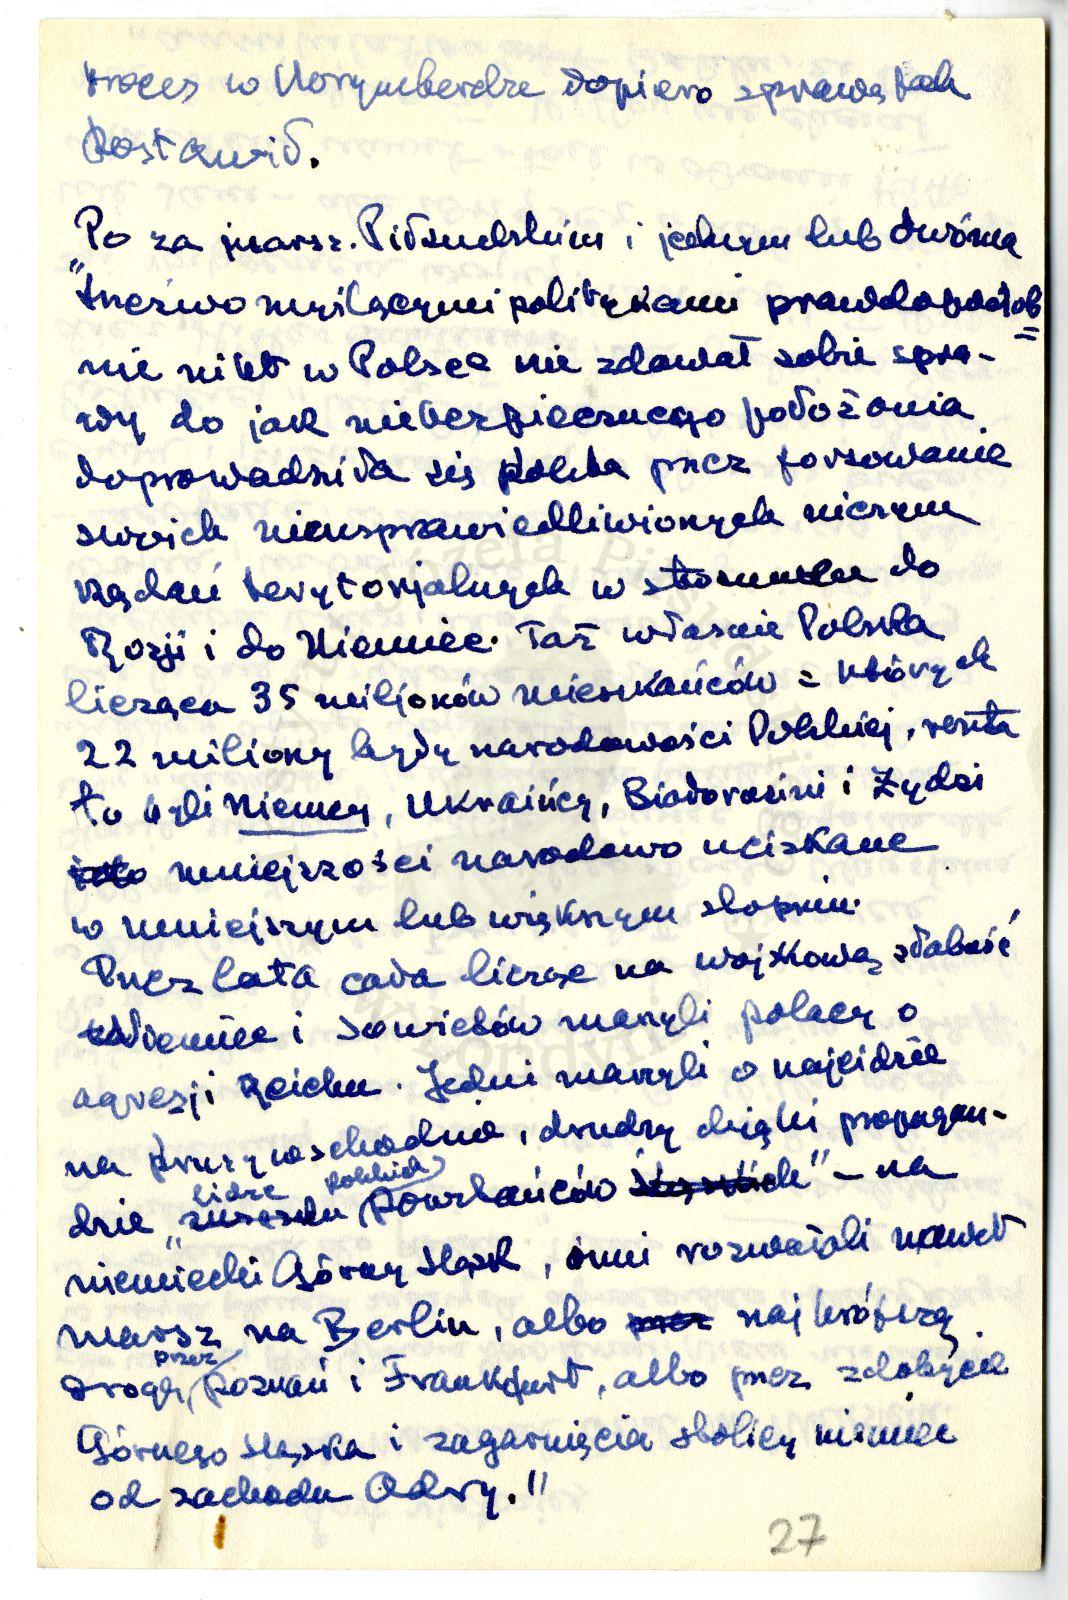 proces w Norymberdze dopiero sprawę tak
postawił.
Po za marsz. Piłsudskim i jednym lub dwóma
"trzeźwo myślącymi politykami prawdopodob=
nie nikt w Polsce nie zdawał sobie spra-
wy do jak niebezpiecznego położenia
doprowadziła się Polska przez forsowanie
swych nieusprawiedliwionych niczym
żądań terytorjalnych w stosunku do
Rosji i do Niemiec. Taż właśnie Polska
licząca 35 miljonów mieszkańców = których
22 miliony były narodowości Polskiej, reszta
to byli Niemcy, Ukraińcy, Białorusini i Żydzi
mniejszości narodowo uciskane
w mniejszym lub większym stopniu.
Przez lata cała licząc na wojskową słabość
Niemiec i Sowietów marzyli polacy o
agresji Reichu. Jedni marzyli o najeździe
na Prusy wschodnie, drudzy dzięki propagan-
dzie "związku polskich powstańców śląskich" – na
niemiecki Górny Śląsk, inni rozważali nawet
marsz na Berlin, albo najkrótszą
drogą, przez Poznań i Frankfurt, albo przez zdobycie
Górnego Śląska i zagarnięcia stolicy niemiec
od zachodu Odry."
27
w Londynie